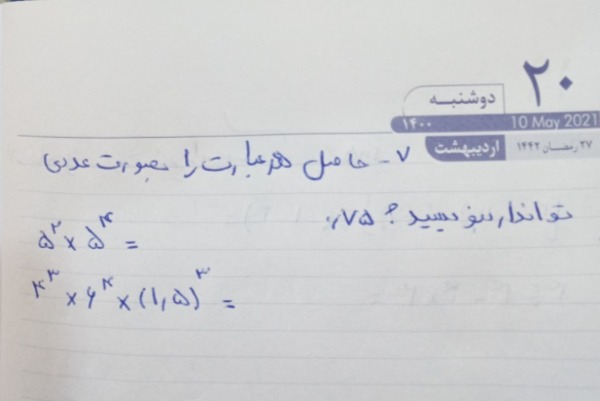 ۲۰
دوشنبه
۱۴۰۰ 10 May 2021
اردیبهشت ۲۷ رمضان ۱۴۴۲
۷- حاصل هر عبارت را بصورت عددی
تواندار بنویسید؟ ۷۵،
۵^۲ × ۵^۴ =
۴^۳ × ۶^۴ × (۱٫۵)^۳ =